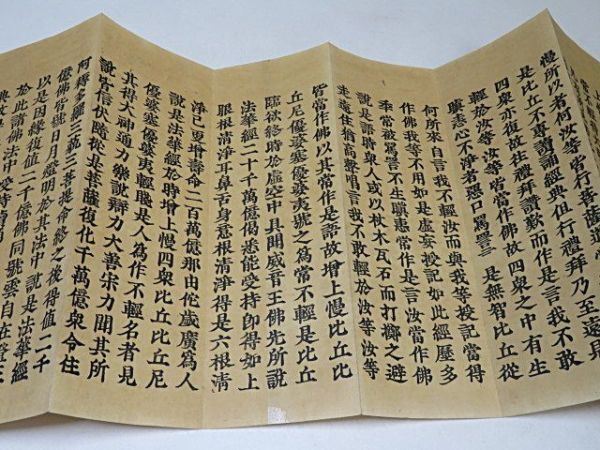 慢所以者何汝等皆行菩薩道當
是比丘不專讀誦經典但行禮拜乃至遠見
四衆亦復故往禮拜讚歎而作是言我不敢
輕於汝等汝等皆當作佛故四衆之中有生
瞋恚心不淨者惡口罵詈言是無智比丘從
何所來自言我不輕汝而與我等授記當得
作佛我等不用如是虛妄授記如此經歷多
秊常被罵詈不生瞋恚常作是言汝當作佛
說是語時衆人或以杖木瓦石而打擲之避
走遠住猶高聲唱言我不敢輕於汝等汝等
皆當作佛以其常作是語故增上慢比丘比
丘尼優婆塞優婆夷號之為常不輕是比丘
臨欲終時於虛空中具聞威音王佛先所說
法華經二十千萬億偈悉能受持卽得如上
眼根清淨耳鼻舌身意根清淨得是六根清
淨已更增壽命二百萬億那由佗歲廣為人
說是法華經於時增上慢四衆比丘比丘尼
優婆塞優婆夷輕賤是人為作不輕名者見
其得大神通力樂說辯力大善寂力聞其所
說皆信伏隨從是菩薩復化千萬億衆令住
阿耨多羅三藐三菩提命終之後得值二千
億佛皆號日月燈明於其法中說是法華經
以是因緣復值二千億佛同號雲自在燈王
於此諸佛法中受持讀